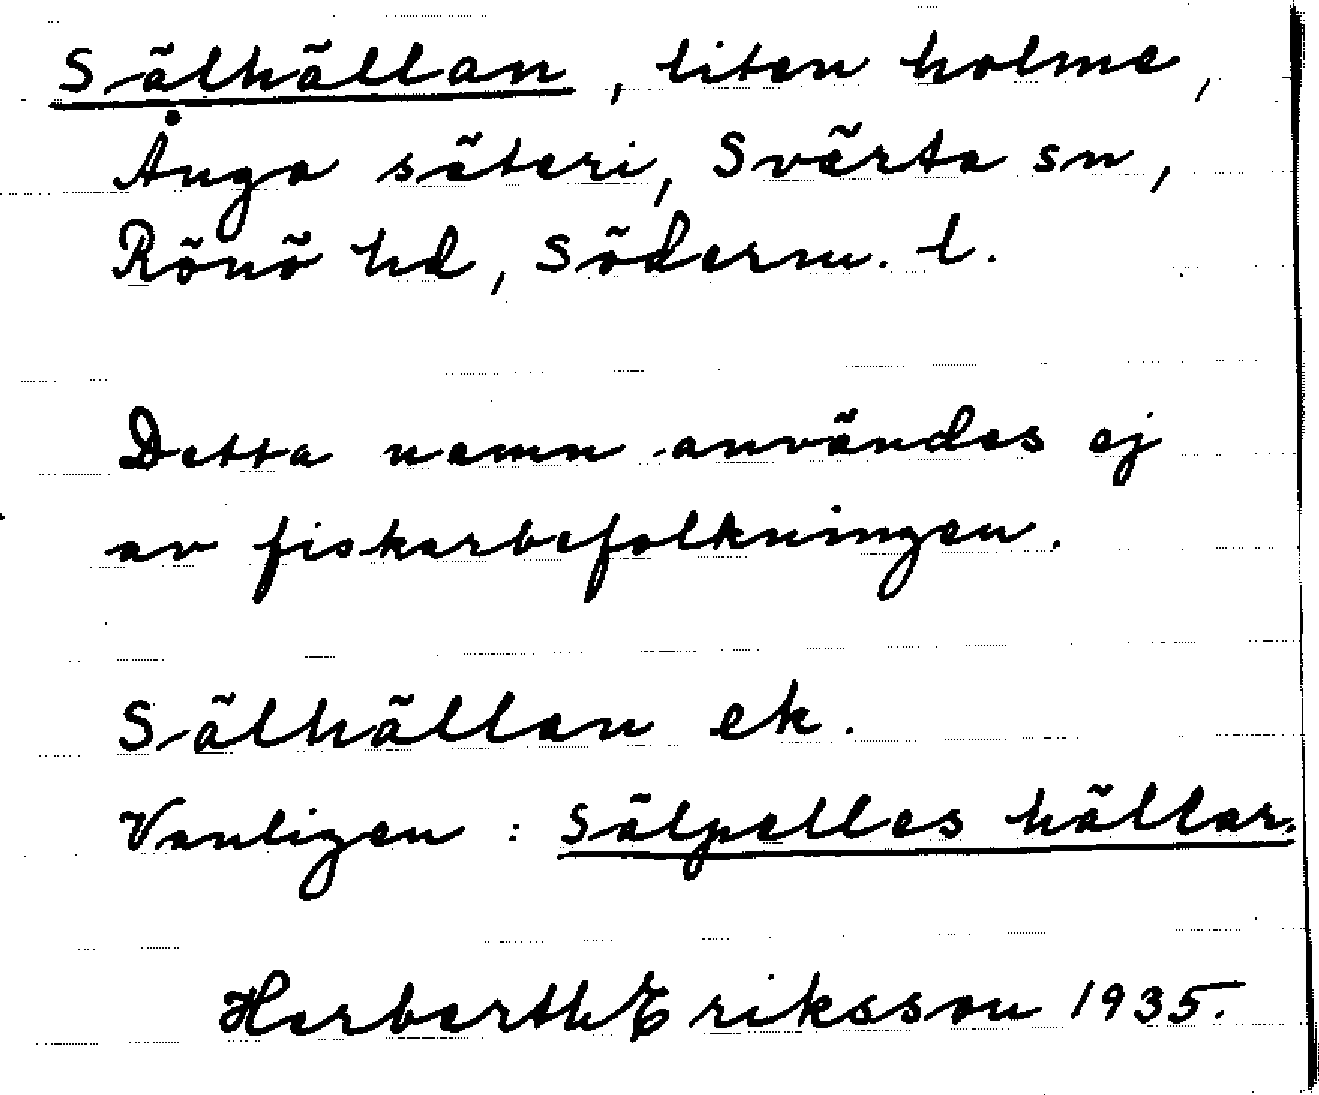 Sälhällan, liten holme,
Ånga säteri, Svärta sn,
Rönö hd, Söderm. l.
Detta namn användes ej
av fiskarbefolkningen.
Sälhällan ek.
Vanligen: Sälpelles hällar.
Herberth Eriksson 1935.